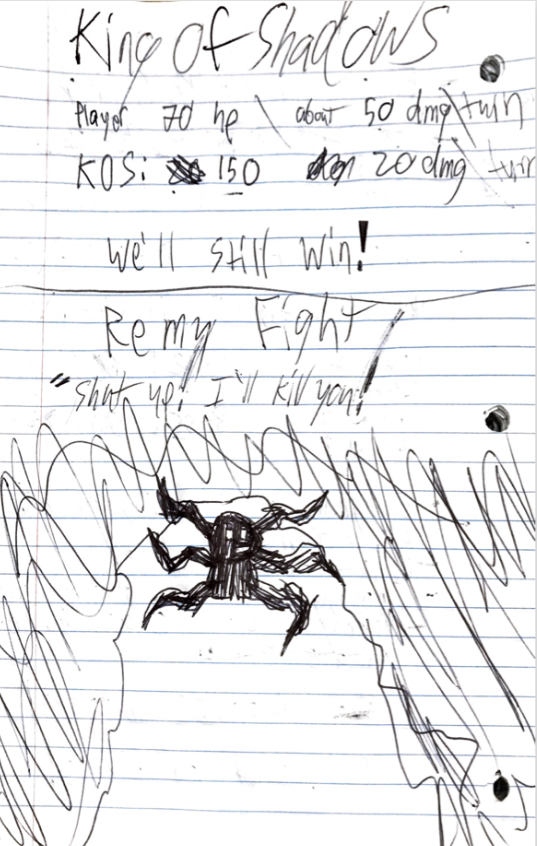 King Of Shadows
Player 70 hp \ about 50 dmg\turn
KOS: 150 20 dmg\turn
We'll still win!
Remy Fight
"Shut up! I'll kill you!